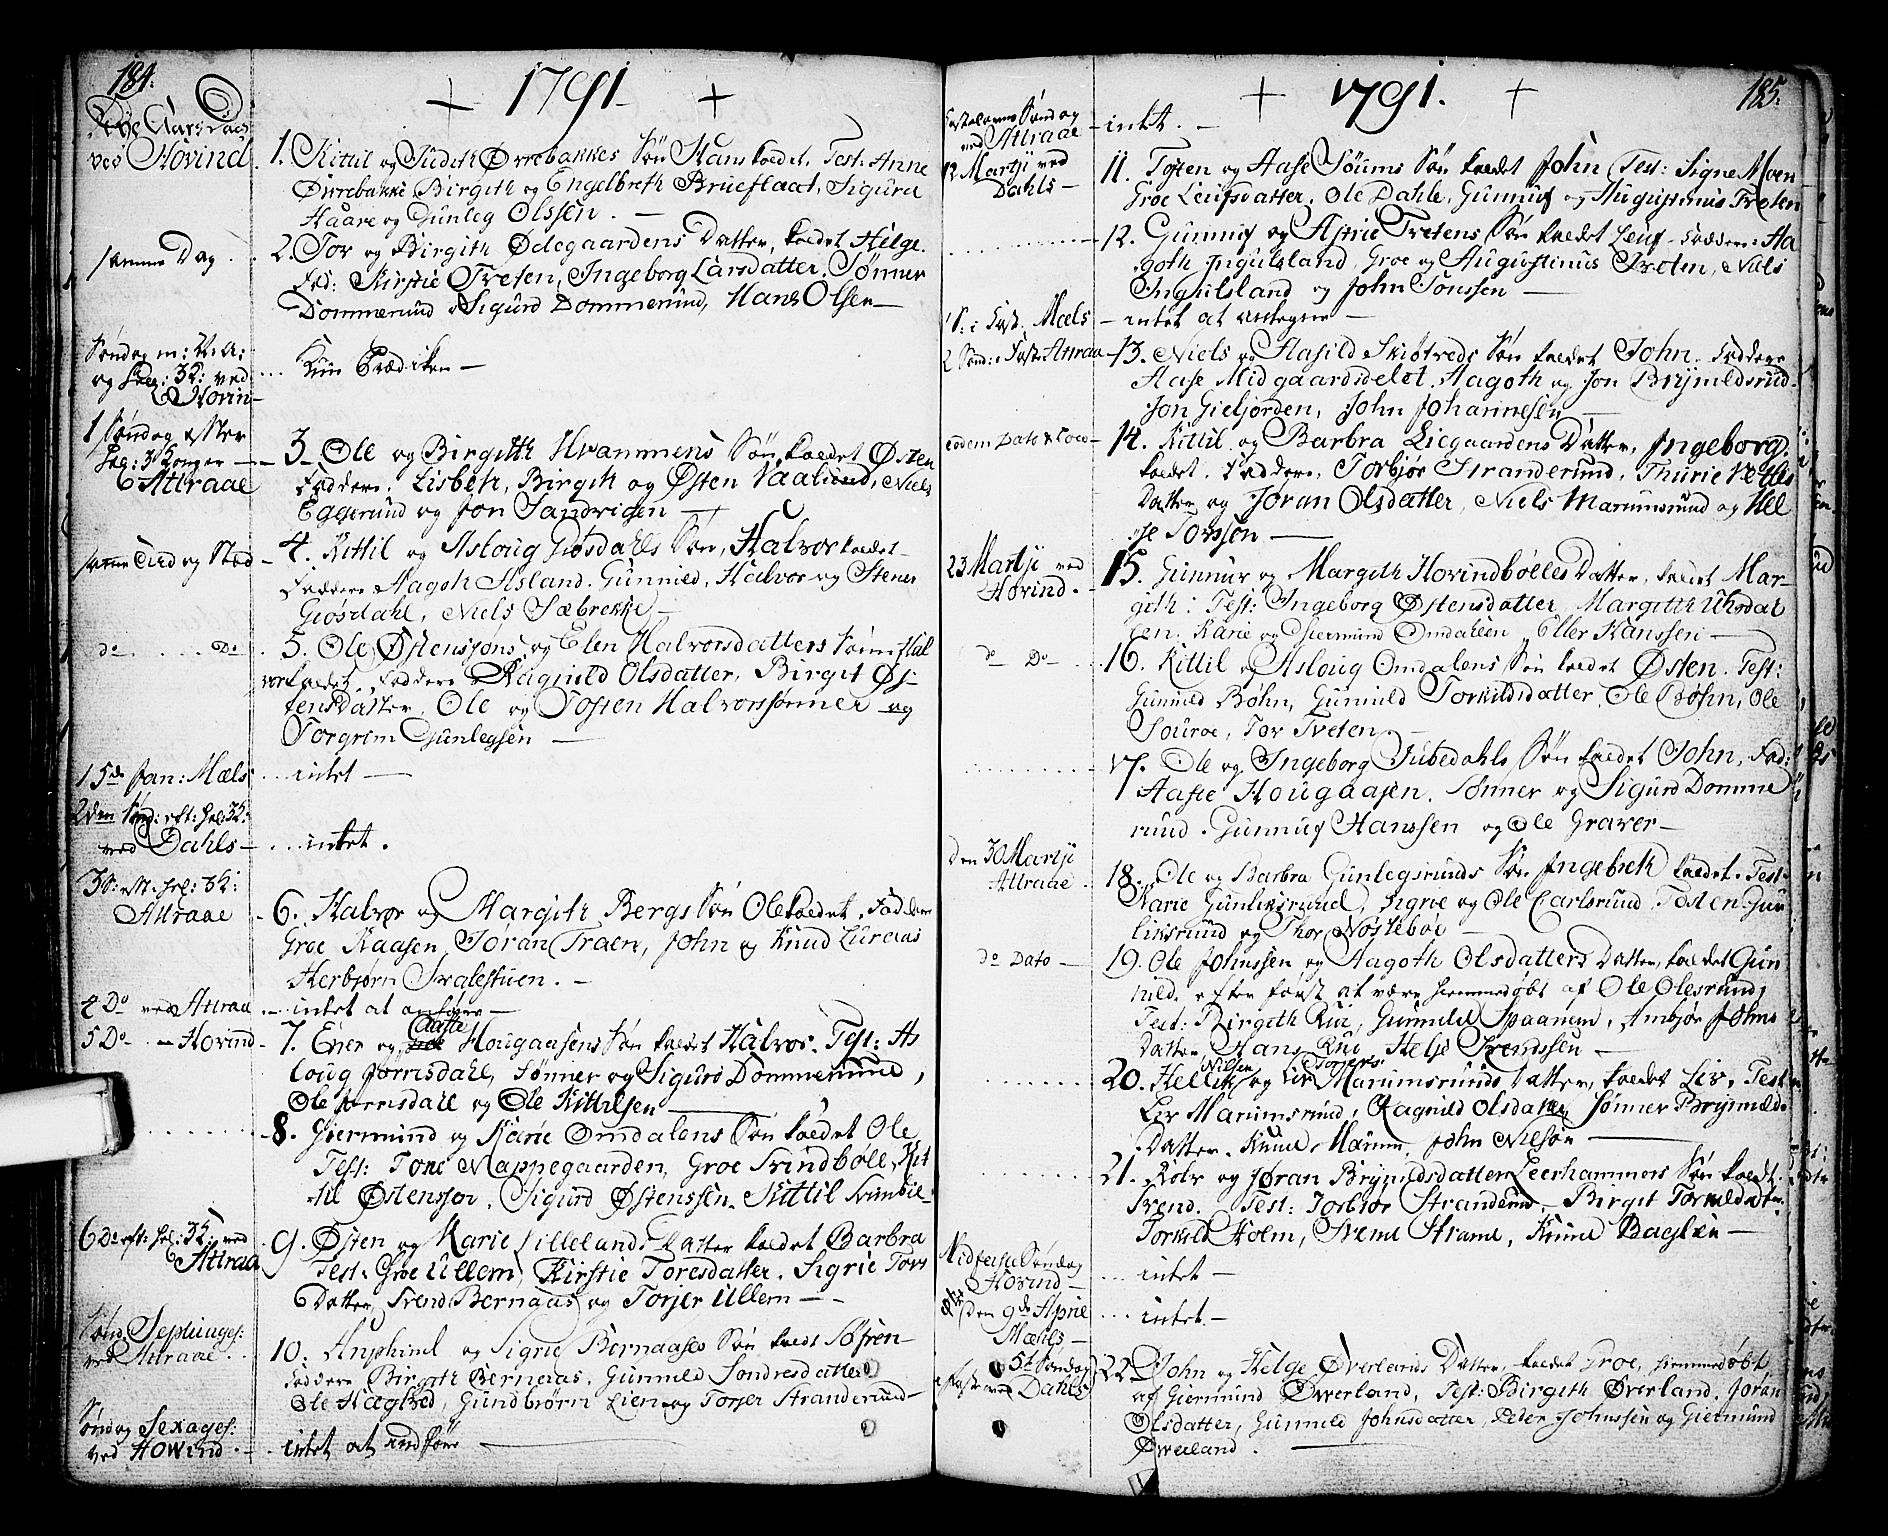 184.
1791.
Nye Aars Dag
ved Hovind
1. Kittil og Judith Øvrebakkes Søn Hans kaldet. Test: Anne
Øvrebakke Birgith og Engelbreth Brueflaat, Sigurd
Haare og Gunleg Olssen. —
samme Dag
2. Tor og Birgith Ødegaardens Datter, kaldet Helge.
Fad: Kirstie Tveten, Ingeborg Larsdatter, Sønner
Dommerund, Sigurd Dommerund, Hans Olsen —
Søndag m: N: A:
og Hel: 3K: ved
Hovin —
Kun Prædiken —
1 Søndag efter
Hel: 3 Konger —
Attraae
3. Ole og Birgith Hvammens Søn, kaldet Østen
Faddere. Lisbeth, Birgith og Østen Vaalund, Niels
Eggerund og Jon Sandvigen —
samme Tid og Stæd
4. Kittil og Aslaug Giøsdahls Søn, Halvor kaldet
Faddere Aagoth Asland. Gunnild, Halvor og Stener
Giøsdahl, Niels Sæbrekke —
do Do
5. Ole Østensøns og Elen Halvorsdatters Søn Hal
vor kaldet. Faddere Ragnild Olsdatter, Birgit Øs-
tensdatter, Ole og Tosten Halvorssønner og
Torgrim Gunlegsen —
15de Jan: Mæls
intet —
2den Sønd: eft: Hel: 3K:
ved Dahls —
intet.
3 S: eft. Hel: 3K:
Attraae
6. Halvor og Margith Bergs Søn Ole kaldet. Faddere
Groe Kaasen, Jøran Traen, John og Knud Luraas
Herbjørn Svalestuen. —
4 Do ved Attraae
intet at anføre —
5 Do — Hovind
7. Ener og Aaste Hougaasens Søn kaldet Halvor. Test: As
loug Jorrisdahl, Sønner og Sigurd Dommerund,
Ole Jorrisdahl og Ole Kittilsen —
8. Giermund og Karie Omdalens Søn kaldet Ole
Test: Tone Nappegaarden, Groe Svindbøle, Kit
til Østenssøn, Sigurd Østenssen, Kittil Svinbøl-
6 Do eft: Hel: 3K: ved
Attraa
9. Østen og Marie Lillelands Datter kaldet Barbra
Test: Groe Ullern, Kirstie Toresdatter. Sigrie Tors
Datter, Svend Bernaas og Torjer Ullern —
Sønd: Septuages:
ved Attraae.
10. Anphind og Sigrie Bernaases Søn kaldt Søfren
Faddere Birgith Bernaas, Gunnild Sondresdatter
Ole Hægtved, Gundbrørn Lien og Torjer Stranderund —
Søndag Sexages:
ved Howind.
intet at indføre —
185.
1791.
Fastelavns Søndag
ved Attraae
intet. —
13 Martji ved
Dahls —
11. Tosten og Aase Søums Søn kaldet John Test: Signe Moen
Groe Leufsdatter, Ole Dahle, Gunnuf og Augustinus Tveten
12. Gunnuf og Astrie Tvetens Søn kaldet Leuf. Faddere: Aa
goth Ingulsland, Groe og Augustinus Tveten, Niels
Ingulsland og John Tonssen —
1 S: i Fast. Mæls
intet at antegne —
2 Sønd: i Faste Attraa
13. Niels og Aasild Skiøtveds Søn kaldet John. Faddere
Aase Midgaardsdelet, Aagoth og Jon Brynildsrud.
Jon Gieljorden, John Johannesen —
eodem Dato & Loco
14. Kittil og Barbra Liegaardens Datter, Ingeborg.
kaldet. Faddere, Torbjør Stranderund, Thurie Nettles
Datter og Joran Olsdatter, Niels Marumsrund og Hel
je Torssen —
23 Martji ved
Hovind.
15. Gunnur og Margith Hovindbølles Datter, kaldet Mar-
gith: Test: Ingeborg Østensdatter, Margith
Karie og Giermund Omdalen, Eller Hanssen —
do Do
16. Kittil og Asloug Omdalens Søn kaldet Østen. Test:
Gunnild Bøhn, Gunnild Torkildsdatter, Ole Bøhn, Ole
Souroe, Tor Tveten. —
17. Ole og Ingeborg Jubedahls Søn kaldet John, Fad:
Aaste Hougaasen. Sønner og Sigurd Domme
rund. Gunnuf Hanssen og Ole Graver —
den 30 Martji
Attraae.
18. Ole og Barbra Gunlegsrunds Søn Ingebreth kaldet. Test.
Karie Gunliksrund, Sigrie og Ole Carlsrund, Tosten Gun
liksrund og Thor Nøstebøe —
do Dato —
19. Ole Johnssen og Aagoth Olsdatters Datter, kaldet Gun
nild. efter først at være hiemmedøbt af Ole Olesrund,
Test: Birgith Rue, Gunnild Spaanem, Ambjør Johns
Datter, Hans Rue, Helje Svendssen —
Nilsen Torjers
20. Hellik og Liv Marumsrunds Datter, kaldet Liv. Test.
Liv Marumsrund, Ragnild Olsdatter, Sønner Brynilds
Datter, Knud Marum, John Nilsøn —
21. Rolv og Jøran Brynildsdatter Leerhammers Søn kaldt.
Svend. Test: Torbiør Stranderud, Birgit Torkildsdtr.
Torkild Holm, Svend Strand, Knud Bagslie —
Midfaste Søndag
Hovind —
intet —
den 9de April
Mæhls —
intet. —
5t Søndag
i Faste ved Dahls
22. John og Helge Øverlands Datter, kaldet Groe, hiemmedøbt
af Giermund Øverland, Test: Birgith Øverland, Jøran
Olsdatter, Gunnild Johnsdatter, Peder Johnssen og Giermund
Øverland. —